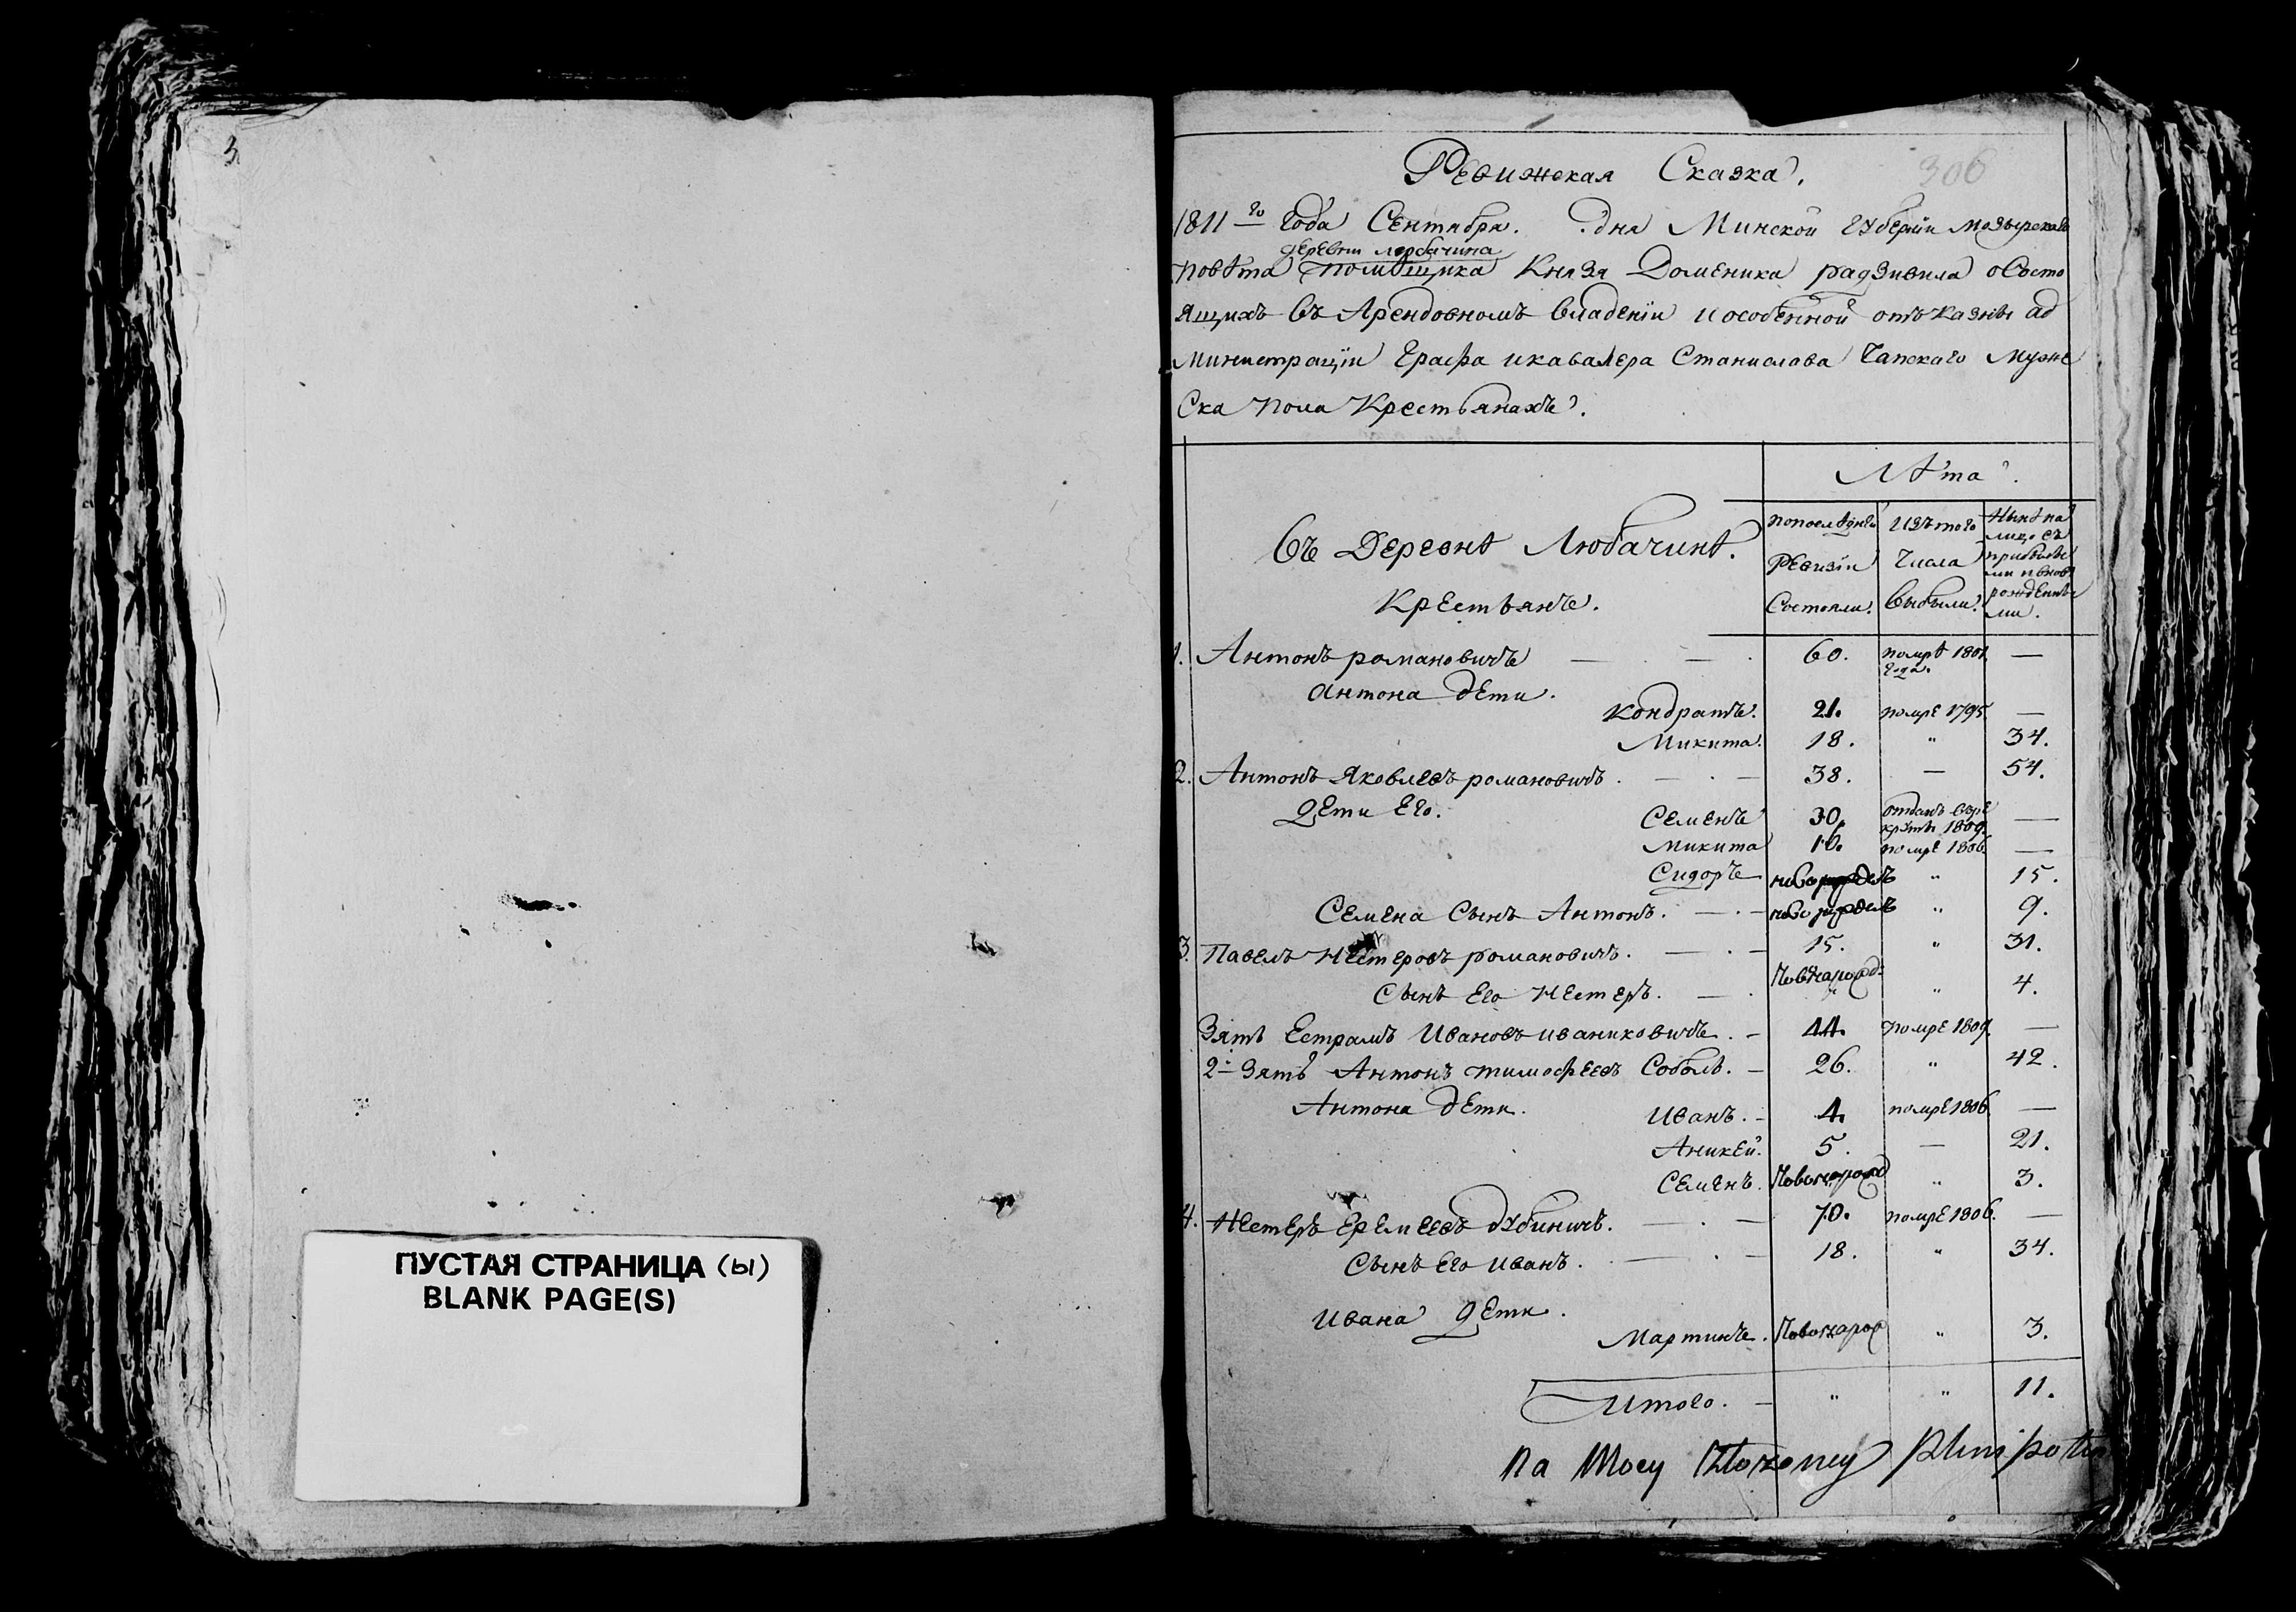 3
306
Ревижская Сказка.
1811го Года Сентября. дня Минской Губернiи Мозырскаго
деревни Любачина
повѣта помѣщика Князя Доменика радзивила oСосто
ящихъ въ Арендовномъ владенiи и особенной отъ казны ад
министрацiи Графа и кавалера Станислава Чапскаго Муже
Ска пола Крестьянахъ.
Лѣта.
въ Деревнѣ Любачинѣ.
Крестьянъ.
попослѣдней Ревизiи Состояли.
Изъ того Числа выбыли.
Нынѣ на лицо съ прибылы ми и вновь рожденны ми.
1. Антонъ романовичъ — . — . 60. помрѣ 1801 года. —
Антона дети.
Кондратъ. 21. помре 1795. —
Микита. 18. " 34.
2. Антонъ Яковлевъ романовичъ. — . — 38. — 54.
Дети Его.
Семенъ 30. отданъ врекруты 1809. —
Микита 16. помре 1806. —
Сидоръ " 15.
Семена Сынъ Антонъ. — . — " 9.
3. Павелъ Нестеровъ романовичъ. — . — 15. " 31.
Сынъ Его Нестеръ. — . " " 4.
Зять Естрамъ Ивановъ иваниковичъ. — 44. помре 1809. —
2й Зять Антонъ тимофеевъ Соболь. — 26. " 42.
Антона дети.
Иванъ. — 4. помре 1806 —
Аникей. 5. — 21.
Семенъ. Новонарожд " 3.
4. Нестеръ Еремеевъ дубиничъ. — . — 70. помре 1806. —
Сынъ Его Иванъ. — . — 18. " 34.
Ивана Дети.
Мартинъ. Новонарож " 3.
Итого. — " " 11.
Na Mocy
ПУСТАЯ СТРАНИЦА (ы)
BLANK PAGE(S)